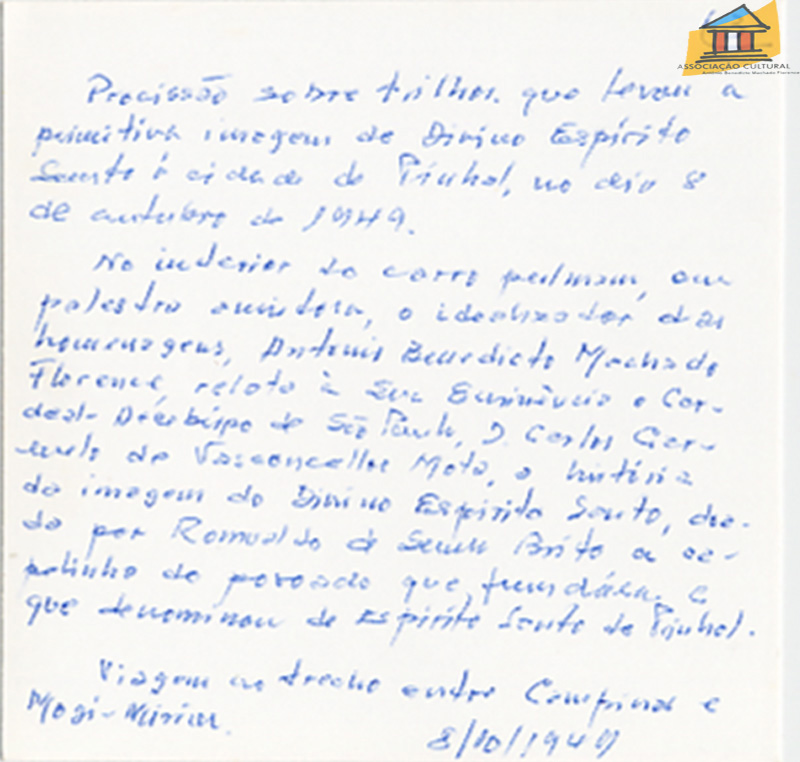 ASSOCIAÇÃO CULTURAL
Antonio Benedicto Machado Florence
Procissão sobre trilhos que levou a
primitiva imagem do Divino Espírito
Santo à cidade de Pinhal, no dia 8
de outubro de 1949.
No interior do carro pullmam, em
palestra amistosa, o idealizador das
homenagens, Antonio Benedicto Machado
Florence, relata à Sua Eminência o Car-
deal-Arcebispo de São Paulo, D. Carlos Car-
melo de Vasconcellos Mota, a história
da imagem do Divino Espírito Santo, doa-
da por Romualdo de Souza Brito a ca-
pelinha do povoado que fundára e
que denominou de Espírito Santo do Pinhal.
Viagem no trecho entre Campinas e
Mogi-Mirim.
8/10/1949